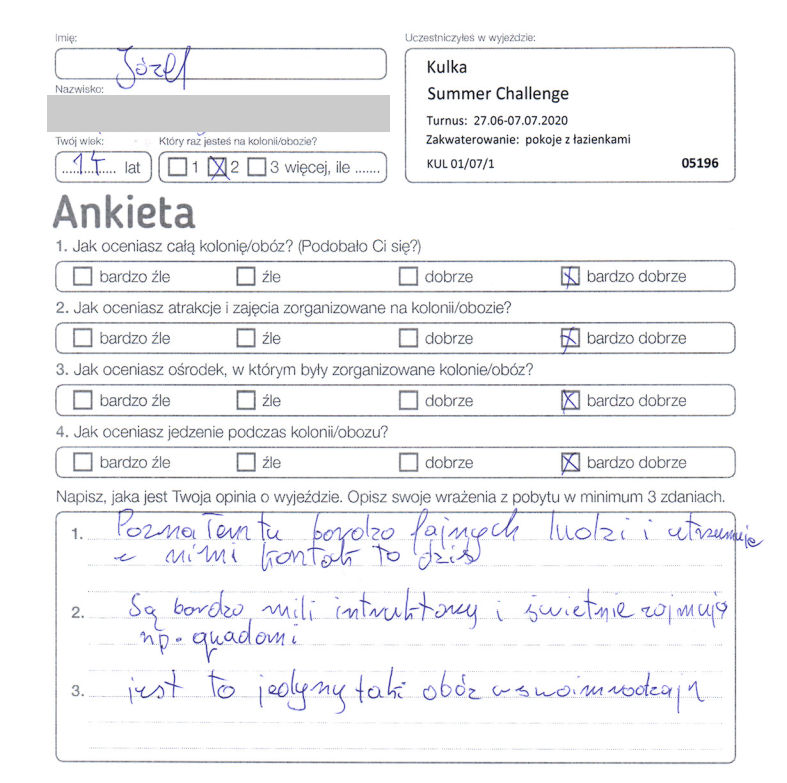 Imię:
Józef
Uczestniczyłeś w wyjeździe:
Kulka
Summer Challenge
Turnus: 27.06-07.07.2020
Zakwaterowanie: pokoje z łazienkami
KUL 01/07/1 05196
Nazwisko:
Twój wiek: Który raz jesteś na kolonii/obozie?
14 lat 1 2 3 więcej, ile .......
Ankieta
1. Jak oceniasz całą kolonię/obóz? (Podobało Ci się?)
bardzo źle źle dobrze bardzo dobrze
2. Jak oceniasz atrakcje i zajęcia zorganizowane na kolonii/obozie?
bardzo źle źle dobrze bardzo dobrze
3. Jak oceniasz ośrodek, w którym były zorganizowane kolonie/obóz?
bardzo źle źle dobrze bardzo dobrze
4. Jak oceniasz jedzenie podczas kolonii/obozu?
bardzo źle źle dobrze bardzo dobrze
Napisz, jaka jest Twoja opinia o wyjeździe. Opisz swoje wrażenia z pobytu w minimum 3 zdaniach.
1. Poznałem tu bardzo fajnych ludzi i utrzumuje
z nimi kontak to dziś
2. Są bardzo mili intruktorzy i świetnie zajmują
np. quadami
3. jest to jedyny taki obóz w swoim rodzaju